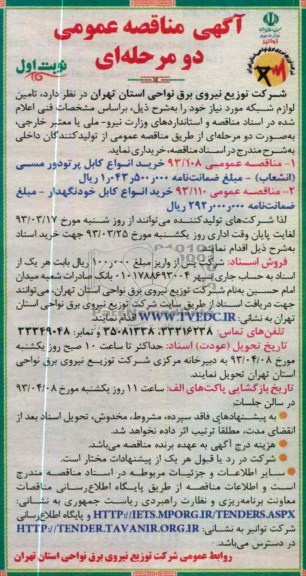 آگهی مناقصه عمومی
دو مرحله‌ای
نوبت اول
شرکت توزیع نیروی برق نواحی استان تهران در نظر دارد، تامین
لوازم شبکه مورد نیاز خود را به‌شرح ذیل، براساس مشخصات فنی اعلام
شده در اسناد مناقصه و استانداردهای وزارت نیرو- ملی یا معتبر خارجی،
به‌صورت دو مرحله‌ای از طریق مناقصه عمومی از تولیدکنندگان داخلی
به‌شرح مندرج در اسناد مناقصه، خریداری نماید.
۱- مناقصه عمومی ۹۳/۱۰۸ خرید انواع کابل پرتودور مسی
(انشعاب) - مبلغ ضمانت‌نامه ۱٫۰۴۳٫۵۰۰٫۰۰۰ ریال
۲- مناقصه عمومی ۹۳/۱۱۰ خرید انواع کابل خودنگهدار - مبلغ
ضمانت‌نامه ۲۹۲٫۰۰۰٫۰۰۰ ریال
لذا شرکت‌های تولیدکننده می‌توانند از روز شنبه مورخ ۹۳/۰۳/۱۷
لغایت پایان وقت اداری روز یکشنبه مورخ ۹۳/۰۳/۲۵ جهت خرید اسناد
به‌شرح ذیل اقدام نمایند.
فروش اسناد: شرکت پس از واریز مبلغ ۱۰۰٫۰۰۰ ریال بابت هر یک از
اسناد به حساب جاری سپهر ۰۱۰۱۷۸۸۶۹۳۰۰۴ بانک صادرات شعبه میدان
امام حسین به‌نام شرکت توزیع نیروی برق نواحی استان تهران، می‌توانند
جهت دریافت اسناد از طریق سایت شرکت توزیع نیروی برق نواحی استان
تهران به نشانی: WWW.TVEDC.IR اقدام نمایند.
تلفن‌های تماس: ۳۳۲۱۶۳۳۸، ۳۵۰۸۱۳۳۸ و نمابر: ۳۳۳۴۹۰۴۸
تاریخ تحویل (عودت) اسناد: حداکثر تا ساعت ۱۰ صبح روز یکشنبه
مورخ ۹۳/۰۴/۰۸ به دبیرخانه مرکزی شرکت توزیع نیروی برق نواحی
استان تهران تحویل نمایند.
تاریخ بازگشایی پاکت‌های الف: ساعت ۱۱ روز یکشنبه مورخ ۹۳/۰۴/۰۸
در سالن جلسات
به پیشنهادهای فاقد سپرده، مشروط، مخدوش، تحویل اسناد بعد از
انقضای مدت، مطلقا ترتیب اثر داده نخواهد شد.
هزینه درج آگهی به عهده برنده مناقصه می‌باشد.
شرکت در رد یا قبول هر یک از پیشنهادات مختار است.
سایر اطلاعات و جزئیات مربوطه در اسناد مناقصه مندرج
است و اطلاعات مناقصه از طریق پایگاه اطلاع‌رسانی مناقصات
معاونت برنامه‌ریزی و نظارت راهبردی ریاست جمهوری به نشانی:
HTTP://IETS.MPORG.IR/TENDERS.ASPX و پایگاه اطلاع‌رسانی
شرکت توانیر به نشانی: HTTP://TENDER.TAVANIR.ORG.IR
در دسترس می‌باشد.
روابط عمومی شرکت توزیع نیروی برق نواحی استان تهران